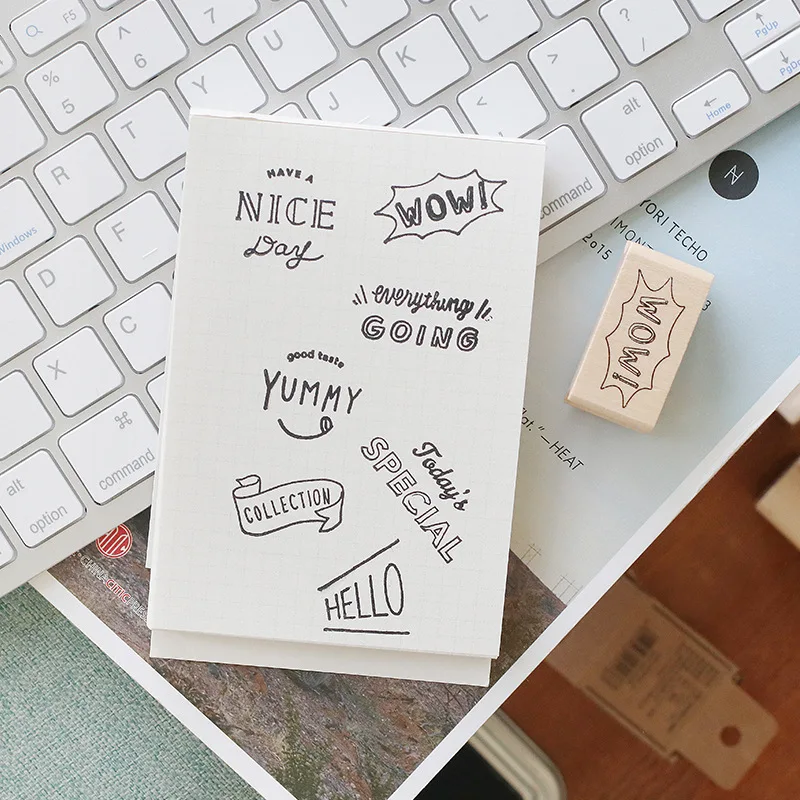 F5
^
6
&
7
PgUp
PgDn
%
5
T
Y
U
J
K
L
<
,
>
.
?
/
alt
option
Home
command
R
F
D
C
X
Windows
⌘
command
alt
option
HAVE A
NICE
Day
WOW!
everything
GOING
good taste
YUMMY
COLLECTION
Today's
SPECIAL
HELLO
WOW!
YORI TECHO
2015
3
—HEAT